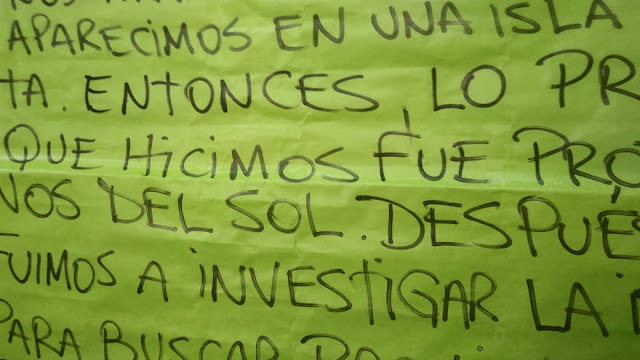 APARECIMOS EN UNA ISLA
TA. ENTONCES, LO PR
QUE HICIMOS FUE PRO
NOS DEL SOL. DESPUÉS
FUIMOS A INVESTIGAR LA I
PARA BUSCAR